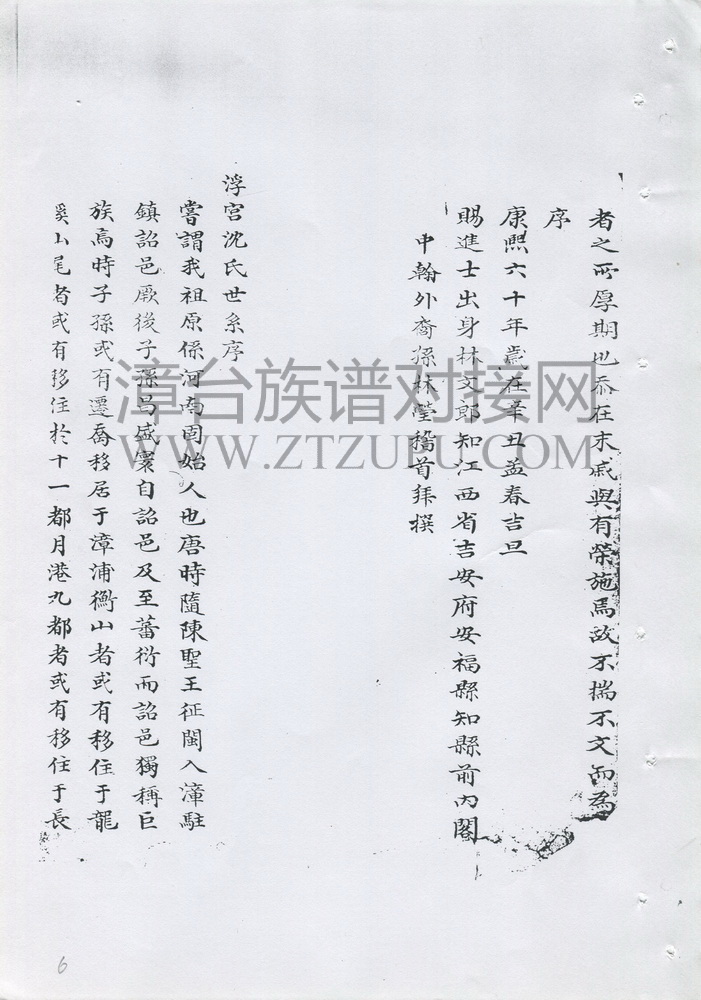 者之所厚期也忝在末戚與有榮施焉故不揣不文而為
序
康熙六十年歲在辛丑孟春吉旦
賜進士出身林文郎知江西省吉安府安福縣知縣前內閣
中翰外裔孫林瑩稽首拜撰
浮宮沈氏世系序
嘗謂我祖原係河南固始人也唐時隨陳聖王征閩入漳駐
鎮詔邑厥後子孫昌盛寰自詔邑及至蕃衍而詔邑獨稱巨
族焉時子孫或有遷喬移居于漳浦衡山者或有移住于龍
溪山尾者或有移住於十一都月港九都者或有移住于長
漳台族谱对接网
WWW.ZTZUPU.COM
6